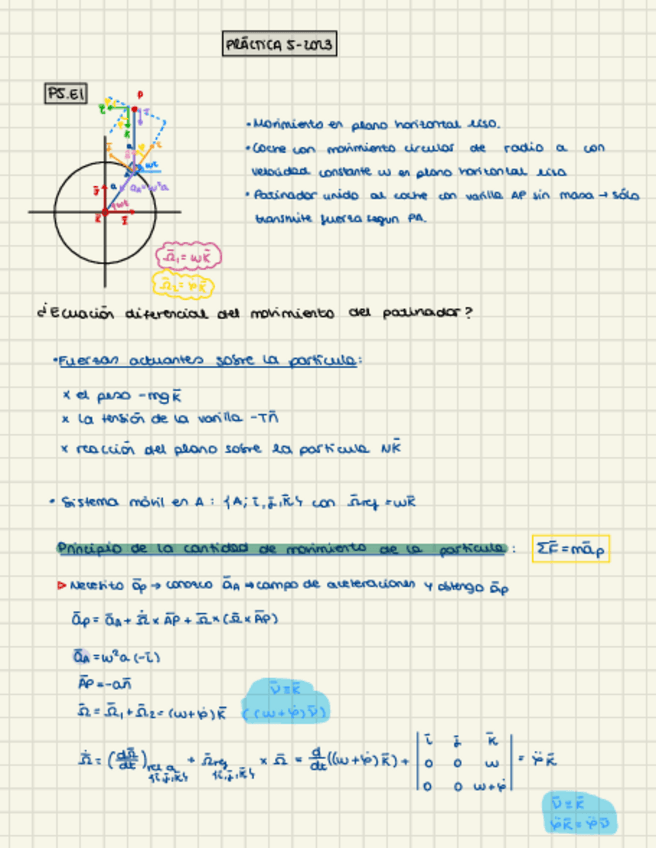 PRÁCTICA 5-2023
P5.E1
P
• Movimiento en plano horizontal liso.
• Coche con movimiento circular de radio a con
velocidad constante ω en plano horizontal liso
• Patinador unido al coche con varilla AP sin masa → sólo
transmite fuerza segun PA.
Ω̄₁ = ωk̄
Ω̄₂ = φ̇k̄
¿Ecuación diferencial del movimiento del patinador?
• Fuerzas actuantes sobre la partícula:
x el peso -mgk̄
x la tensión de la varilla -Tn̄
x reacción del plano sobre la partícula Nk̄
• Sistema móvil en A: {A; ī, j̄, k̄} con Ω̄ref = ωk̄
Principio de la cantidad de movimiento de la partícula: ΣF̄ = māp
▷ Necesito āp → conozco āA → campo de aceleraciones y obtengo āp
āp = āA + Ω̄̇ x ĀP + Ω̄ x (Ω̄ x ĀP)
āA = ω²a (-ī)
ĀP = -an̄
Ω̄ = Ω̄₁ + Ω̄₂ = (ω+φ̇)k̄
ῡ ≡ k̄
((ω+φ̇)ῡ)
Ω̄̇ = (dΩ̄/dt) rel a {ī,j̄,k̄} + Ω̄ref {ī,j̄,k̄} x Ω̄ = d/dt((ω+φ̇)k̄) + | ī j̄ k̄ | 0 0 ω | 0 0 ω+φ̇ | = φ̈k̄
ῡ ≡ k̄
φ̈k̄ = φ̈ῡ